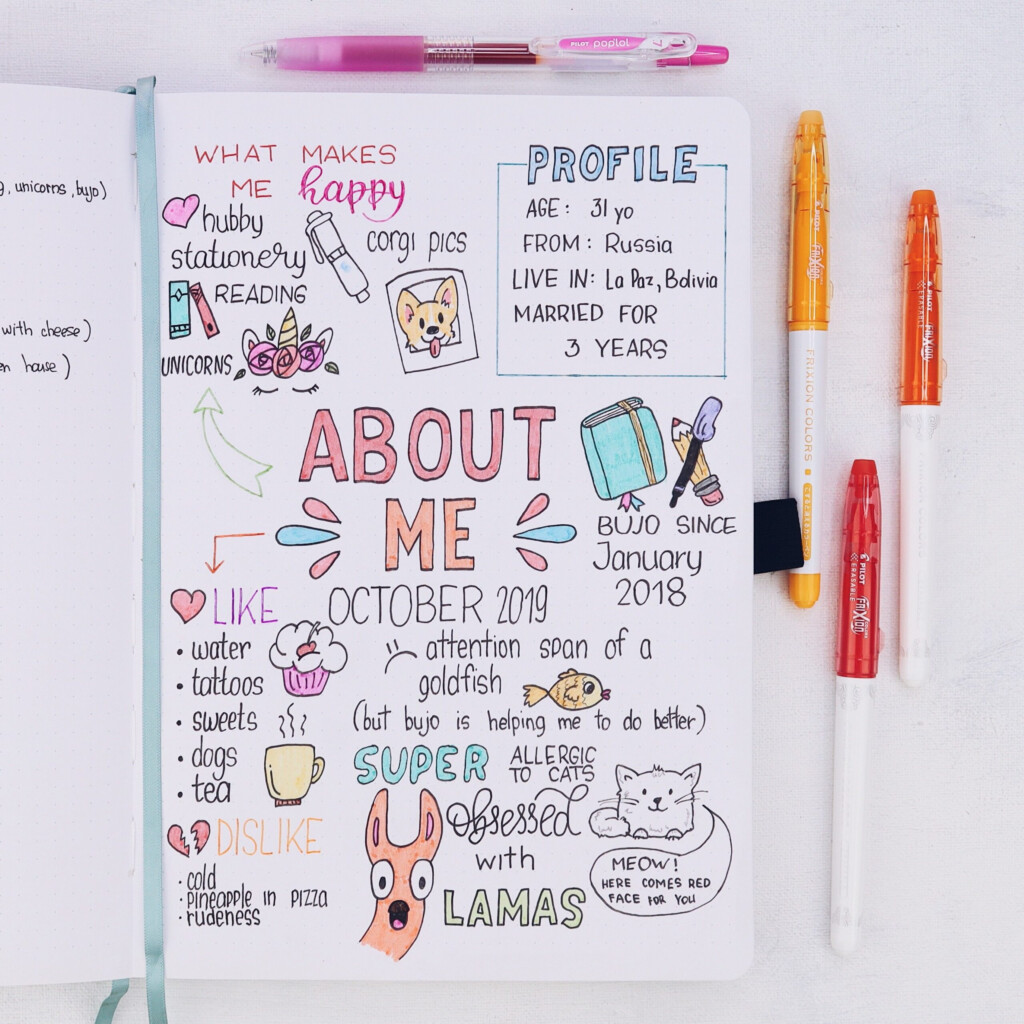 PILOT poplol 7
, unicorns, bujo)
with cheese)
house)
WHAT MAKES
ME happy
hubby
stationery
corgi pics
READING
UNICORNS
PROFILE
AGE: 31 yo
FROM: Russia
LIVE IN: La Paz, Bolivia
MARRIED FOR
3 YEARS
ABOUT
ME
OCTOBER 2019
BUJO SINCE
January
2018
LIKE
• water
• tattoos
• sweets
• dogs
• tea
DISLIKE
• cold
• pineapple in pizza
• rudeness
attention span of a
goldfish
(but bujo is helping me to do better)
SUPER
ALLERGIC
TO CATS
obsessed
with
LAMAS
MEOW!
HERE COMES RED
FACE FOR YOU
PILOT
FRIXION
FRIXION COLORS
PILOT
ERASABLE
FRIXION
PILOT
ERASABLE
FRIXION